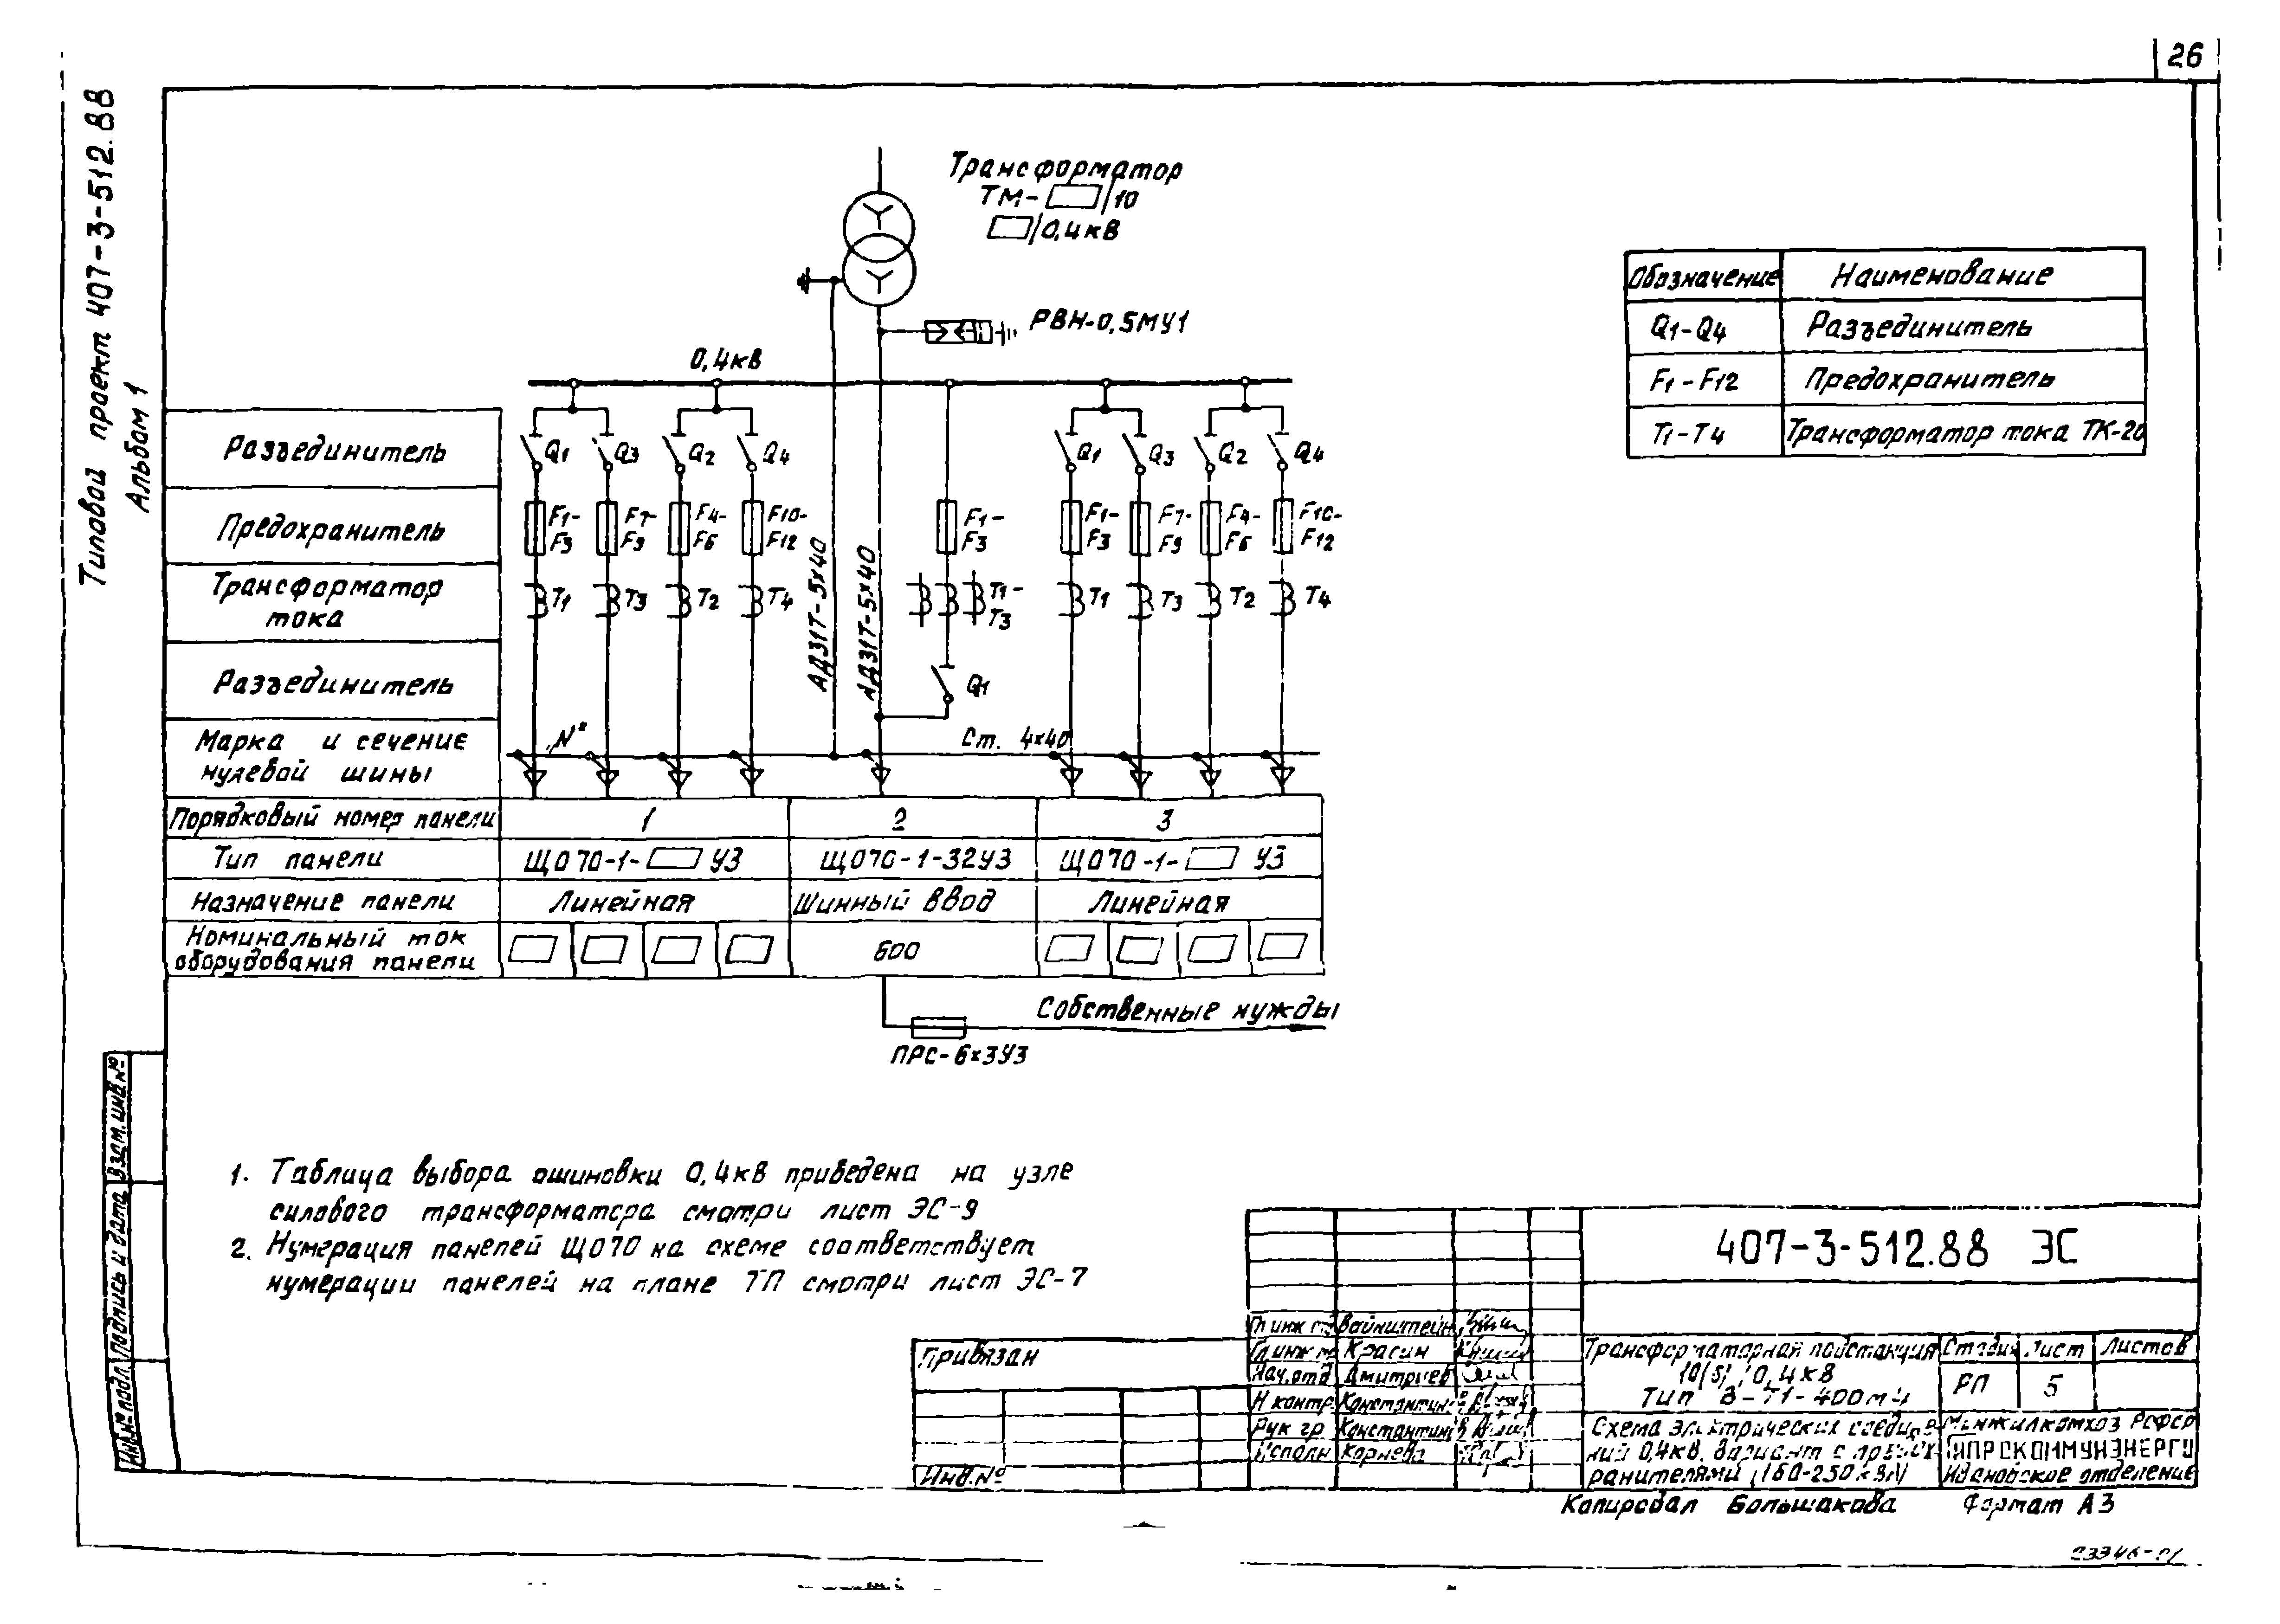 26
Типовой проект 407-3-512.88
Альбом 1
Трансформатор
ТМ-▭/10
▭/0,4кВ
РВН-0,5МУ1
0,4кВ
Обозначение Наименование
Q1-Q4 Разъединитель
F1-F12 Предохранитель
Т1-Т4 Трансформатор тока ТК-20
Разъединитель Q1 Q3 Q2 Q4 Q1 Q3 Q2 Q4
Предохранитель F1-F3 F7-F9 F4-F6 F10-F12 F1-F3 F1-F3 F7-F9 F4-F6 F10-F12
Трансформатор
тока
Т1 Т3 Т2 Т4 Т1-Т3 Т1 Т3 Т2 Т4
АД31Т-5х40
АД31Т-5х40
Разъединитель Q1
Марка и сечение
нулевой шины
„N" Ст. 4х40
Порядковый номер панели 1 2 3
Тип панели ЩО70-1-▭ У3 ЩО70-1-32У3 ЩО70-1-▭ У3
Назначение панели Линейная Шинный ввод Линейная
Номинальный ток
оборудования панели
600
Собственные нужды
ПРС-6х3У3
1. Таблица выбора ошиновки 0,4кВ приведена на узле
силового трансформатора смотри лист ЭС-9
2. Нумерация панелей ЩО70 на схеме соответствует
нумерации панелей на плане ТП смотри лист ЭС-7
Взам. инв. №
Подпись и дата
Инв. № подл.
Привязан
Инв. №
407-3-512.88 ЭС
Гл инж Вайнштейн
Гл инж пр Красин
Нач. отд Дмитриев
Н контр. Константинов
Рук гр Константинов
Исполн Корнева
Трансформаторная подстанция
10(6)/0,4кВ
Тип В-Т1-400м4
Стадия Лист Листов
РП 5
Схема электрических соедине-
ний 0,4кВ. Вариант с предох-
ранителями (160-250кВА)
Минжилкомхоз РСФСР
ГИПРОКОММУНЭНЕРГО
Ивановское отделение
Копировал Большакова Формат А3
23346-01